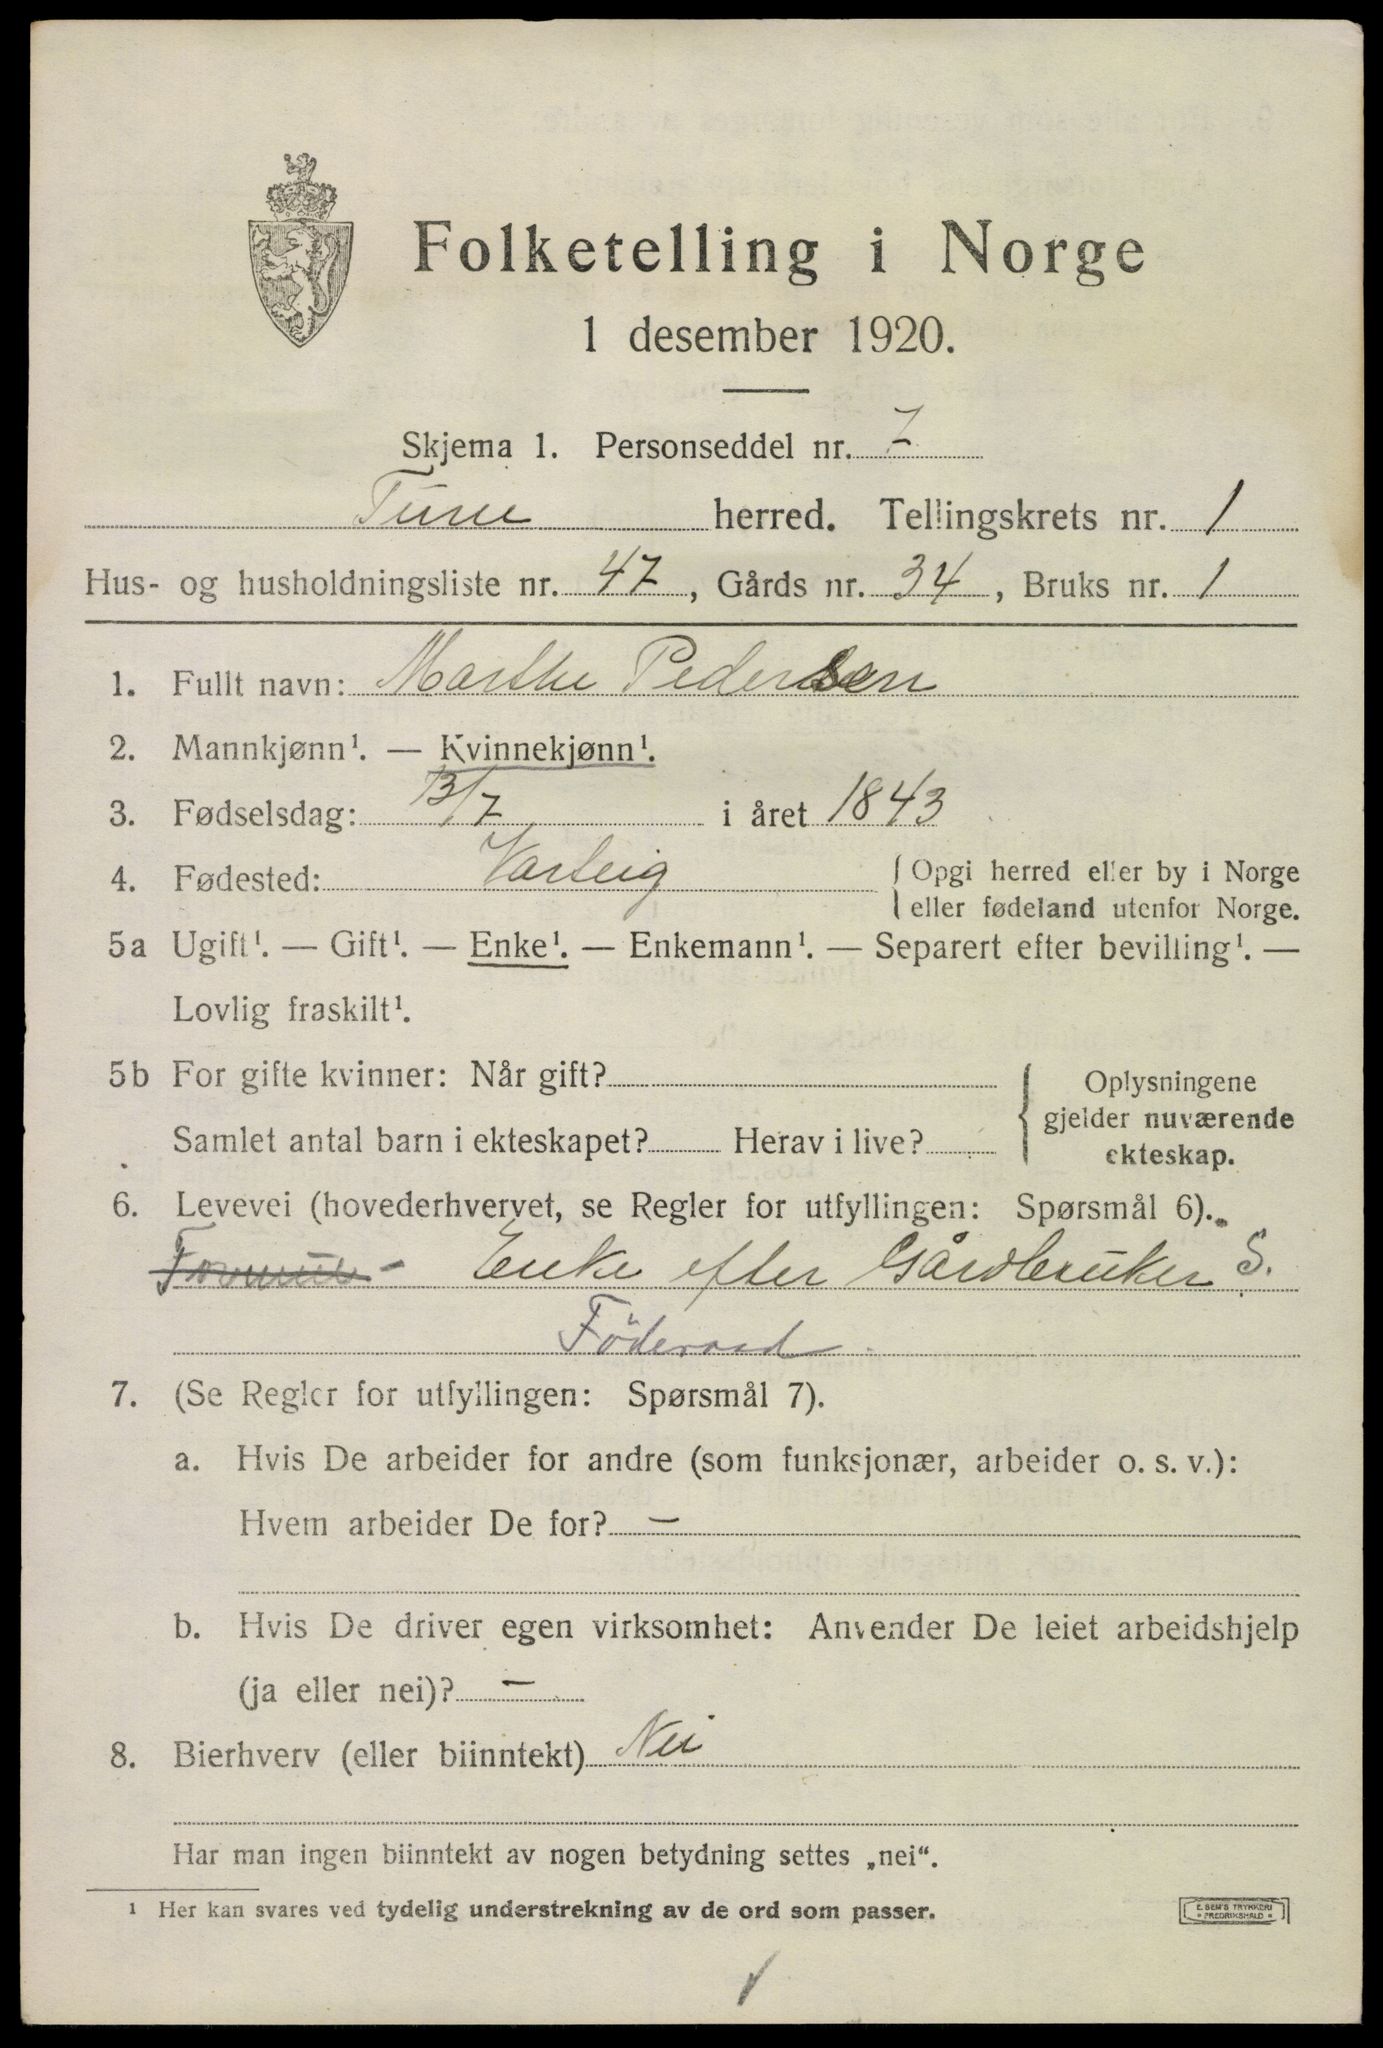 Folketelling i Norge
1 desember 1920.
Skjema 1. Personseddel nr. 7
Tune herred. Tellingskrets nr. 1
Hus- og husholdningsliste nr. 47, Gårds nr. 34, Bruks nr. 1
1. Fullt navn: Marthe Pedersen
2. Mannkjønn¹. — Kvinnekjønn¹.
3. Fødselsdag: 13/7 i året 1843
4. Fødested: Varteig { Opgi herred eller by i Norge
eller fødeland utenfor Norge.
5a Ugift¹. — Gift¹. — Enke¹. — Enkemann¹. — Separert efter bevilling¹. —
Lovlig fraskilt¹.
5b For gifte kvinner: Når gift? { Oplysningene
gjelder nuværende
Samlet antal barn i ekteskapet? Herav i live?
ekteskap.
6. Levevei (hovederhvervet, se Regler for utfyllingen: Spørsmål 6).
- Enke efter Gårdbruker S.
Föderaad.
7. (Se Regler for utfyllingen: Spørsmål 7).
a. Hvis De arbeider for andre (som funksjonær, arbeider o. s. v.):
Hvem arbeider De for? —
b. Hvis De driver egen virksomhet: Anvender De leiet arbeidshjelp
(ja eller nei)? —
8. Bierhverv (eller biinntekt) Nei
Har man ingen biinntekt av nogen betydning settes „nei".
¹ Her kan svares ved tydelig understrekning av de ord som passer.
E. SEM'S TRYKKERI
• FREDRIKSHALD •